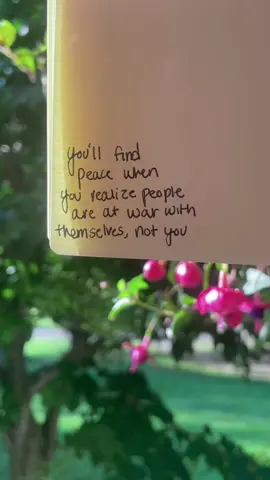 you'll find
peace when
you realize people
are at war with
themselves, not you